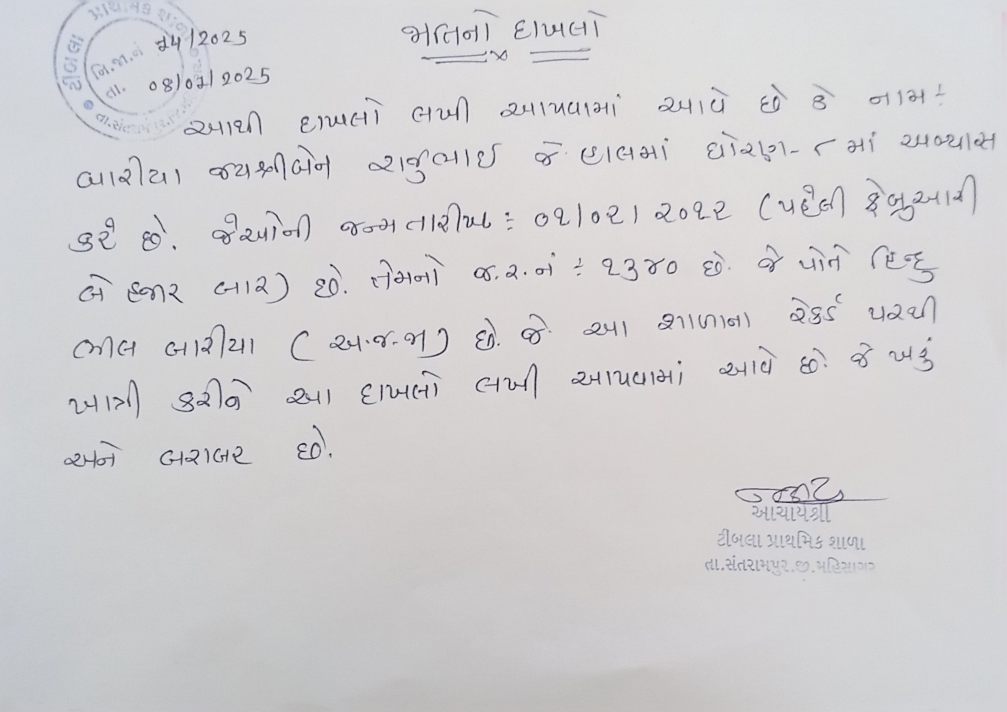 ટીબલા પ્રાથમિક શાળા
નિ.જા.નં 24/2025
તા. 08/07/2025
જાતિનો દાખલો
આથી દાખલો લખી આપવામાં આવે છે કે નામ ÷
બારીયા જયશ્રીબેન રાજુભાઇ જે હાલમાં ધોરણ - ૮ માં અભ્યાસ
કરે છે. જેઓની જન્મતારીખ ÷ ૦૧/૦૨/૨૦૧૨ (પહેલી ફેબ્રુઆરી
બે હજાર બાર) છે. તેમનો જ.ર.નં ÷ ૨૩૪૦ છે. જે પોતે હિન્દુ
ભીલ બારીયા ( અ.જ.જા) છે. જે આ શાળાના રેકર્ડ પરથી
ખાત્રી કરીને આ દાખલો લખી આપવામાં આવે છે. જે ખરૂં
અને બરાબર છે.
આચાર્યશ્રી
ટીબલા પ્રાથમિક શાળા
તા.સંતરામપુર.જી.મહિસાગર